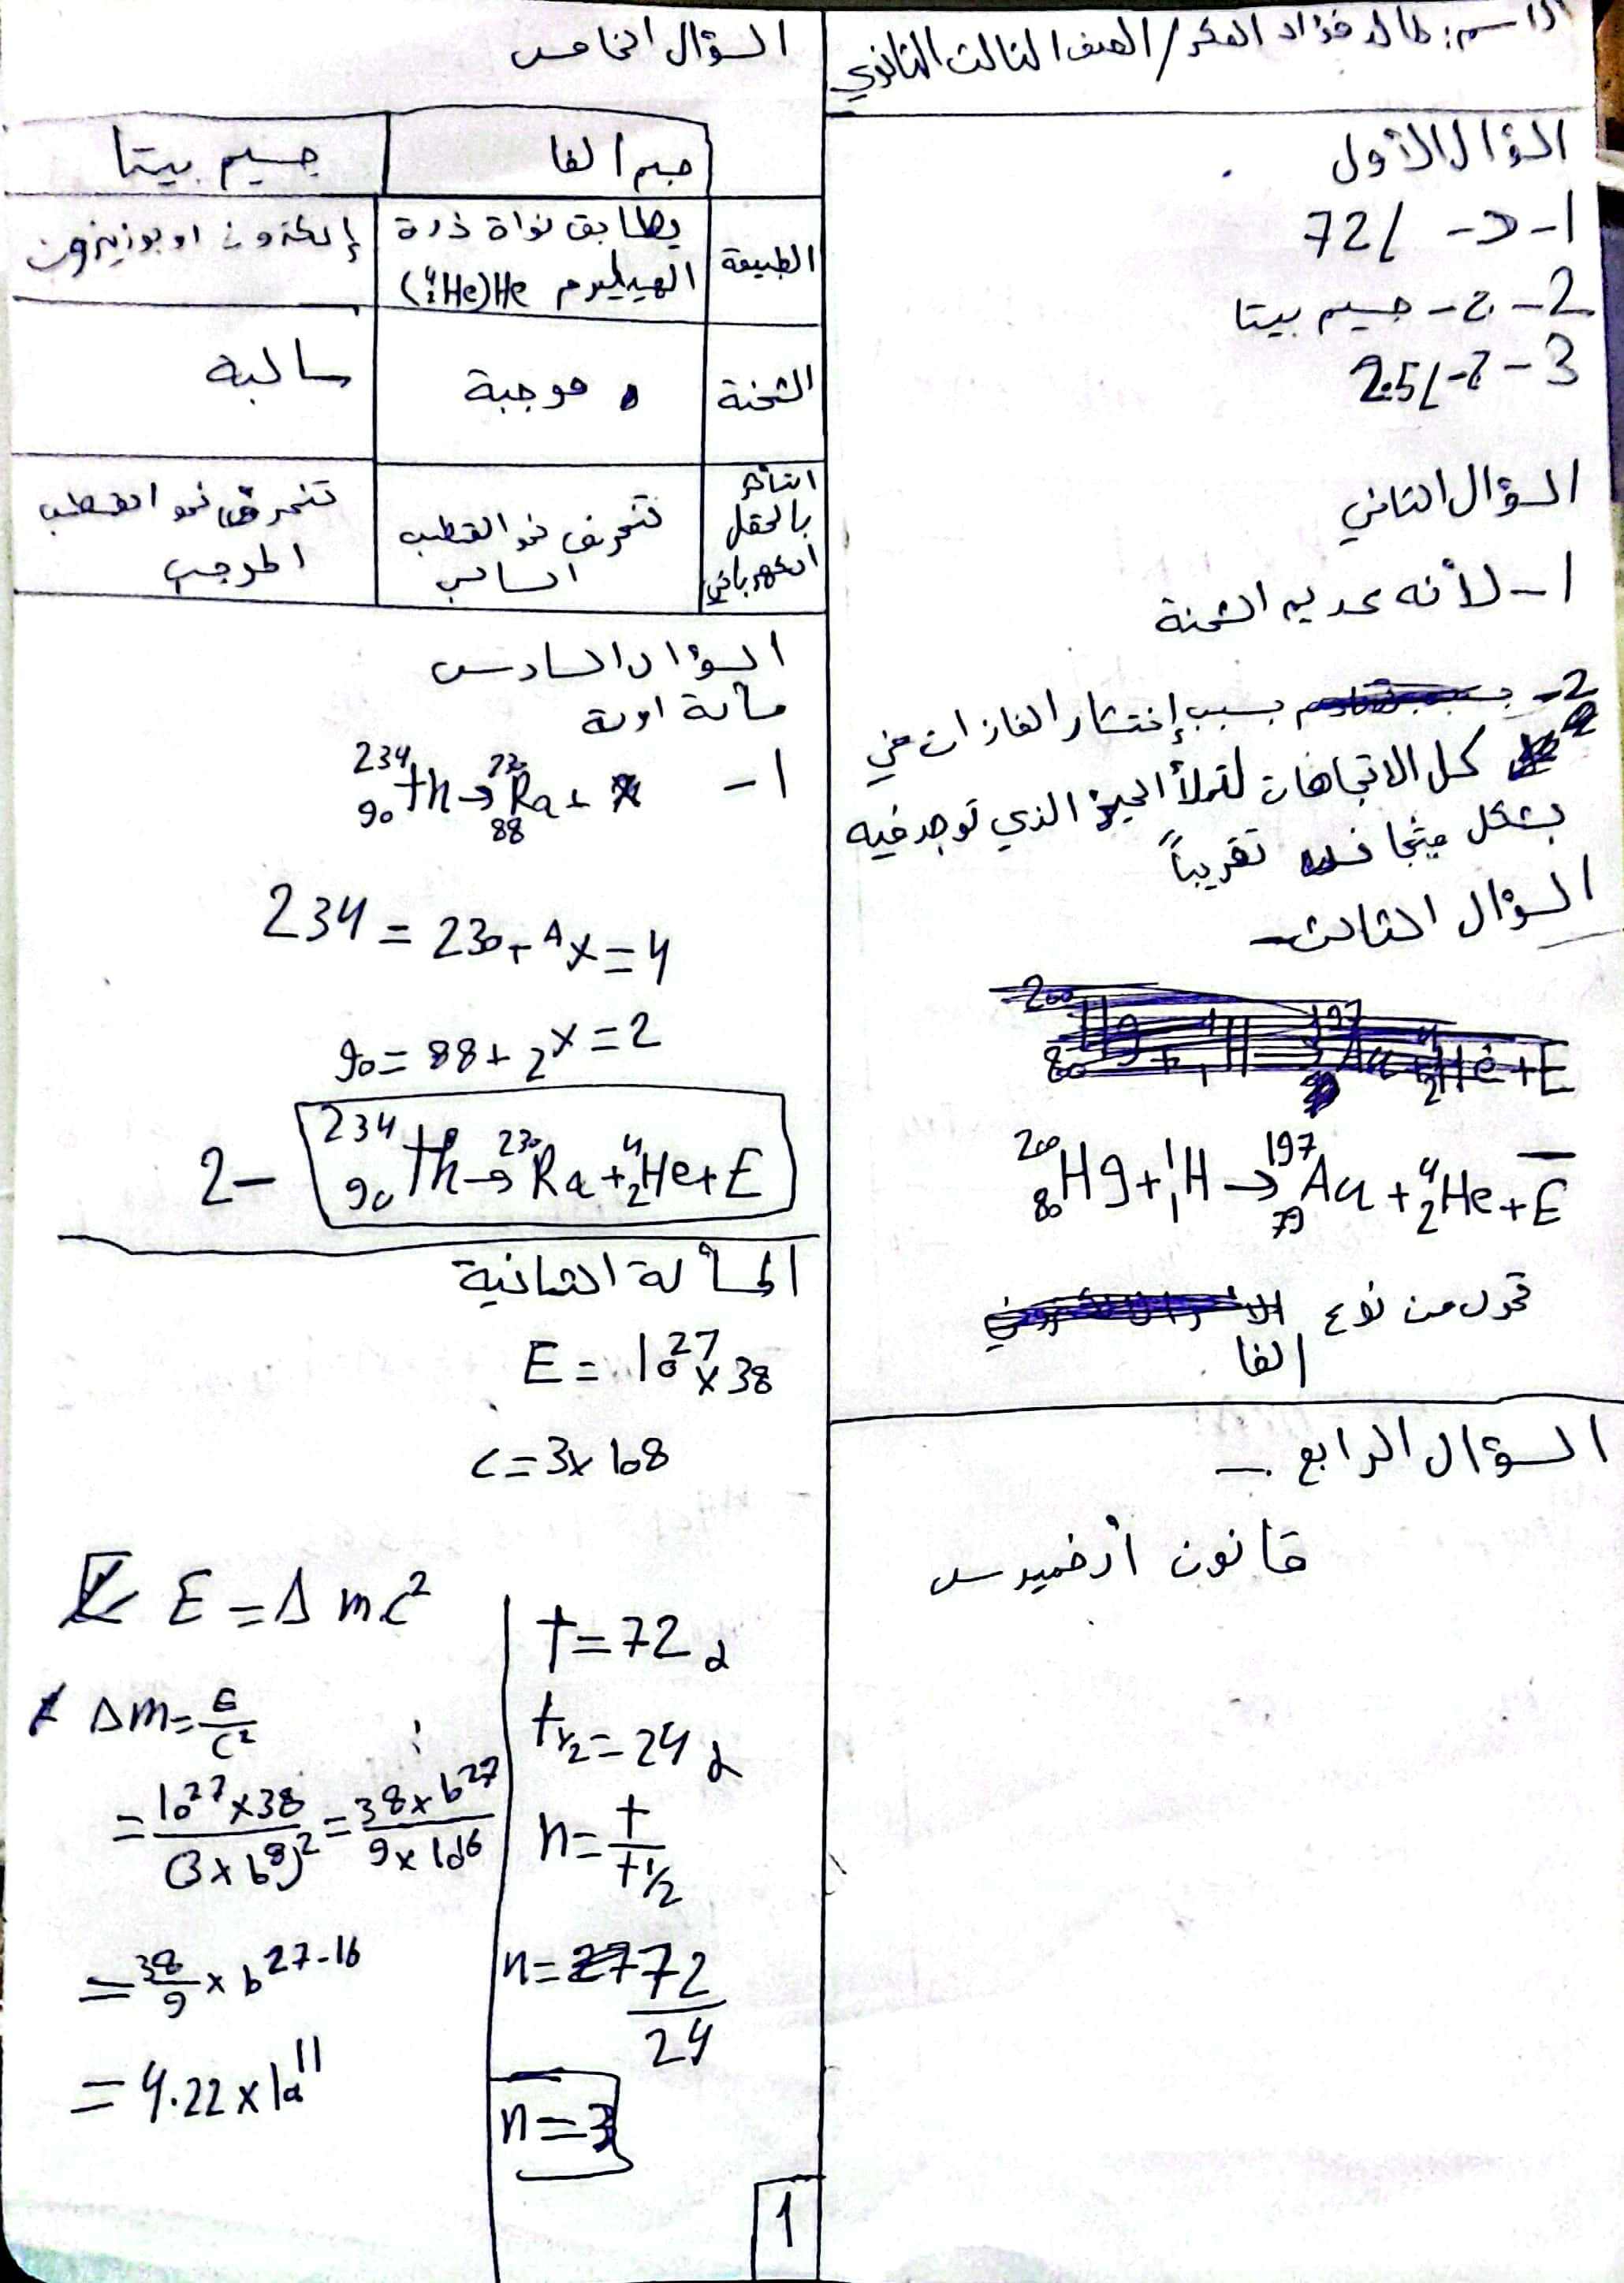 الاسم: خالد فؤاد العكر / الصف الثالث الثانوي
السؤال الأول
1-د- 72L
2- ج- جسيم بيتا
3-2- 2.5L
السؤال الثاني
1- لأنه عديم الشحنة
2- بسبب إنتشار الغازات في
كل الاتجاهات لتملأ الحيز الذي توجد فيه
بشكل متجانس تقريباً
السؤال الثالث
²⁰⁰₈₀Hg + ¹₁H → ¹⁹⁷₇₉Au + ⁴₂He + E
تحول من نوع
الفا
السؤال الرابع
قانون أرخميدس
السؤال الخامس
جسم الفا | جسيم بيتا
الطبيعة | يطابق نواة ذرة الهيليوم He(⁴₂He) | إلكترون او بوزيترون
الشحنة | موجبة | سالبة
التأثر بالحقل الكهربائي | تنحرف نحو القطب السالب | تنحرف نحو القطب الموجب
السؤال السادس
مسألة اولة
1- ²³⁴₉₀Th → ²³⁰₈₈Ra + X
234 = 230 + ᴬX = 4
90 = 88 + ₂X = 2
2- ²³⁴₉₀Th → ²³⁰Ra + ⁴₂He + E
المسألة الثانية
E = 10²⁷ × 38
c = 3 × 108
E = Δmc²
Δm = E/c²
= 10²⁷×38/(3×10⁸)² = 38×10²⁷/9×10¹⁶
= 38/9 × 10²⁷⁻¹⁶
= 4.22 × 10¹¹
t = 72 d
t½ = 24 d
n = t/t½
n = 72/24
n = 3
1